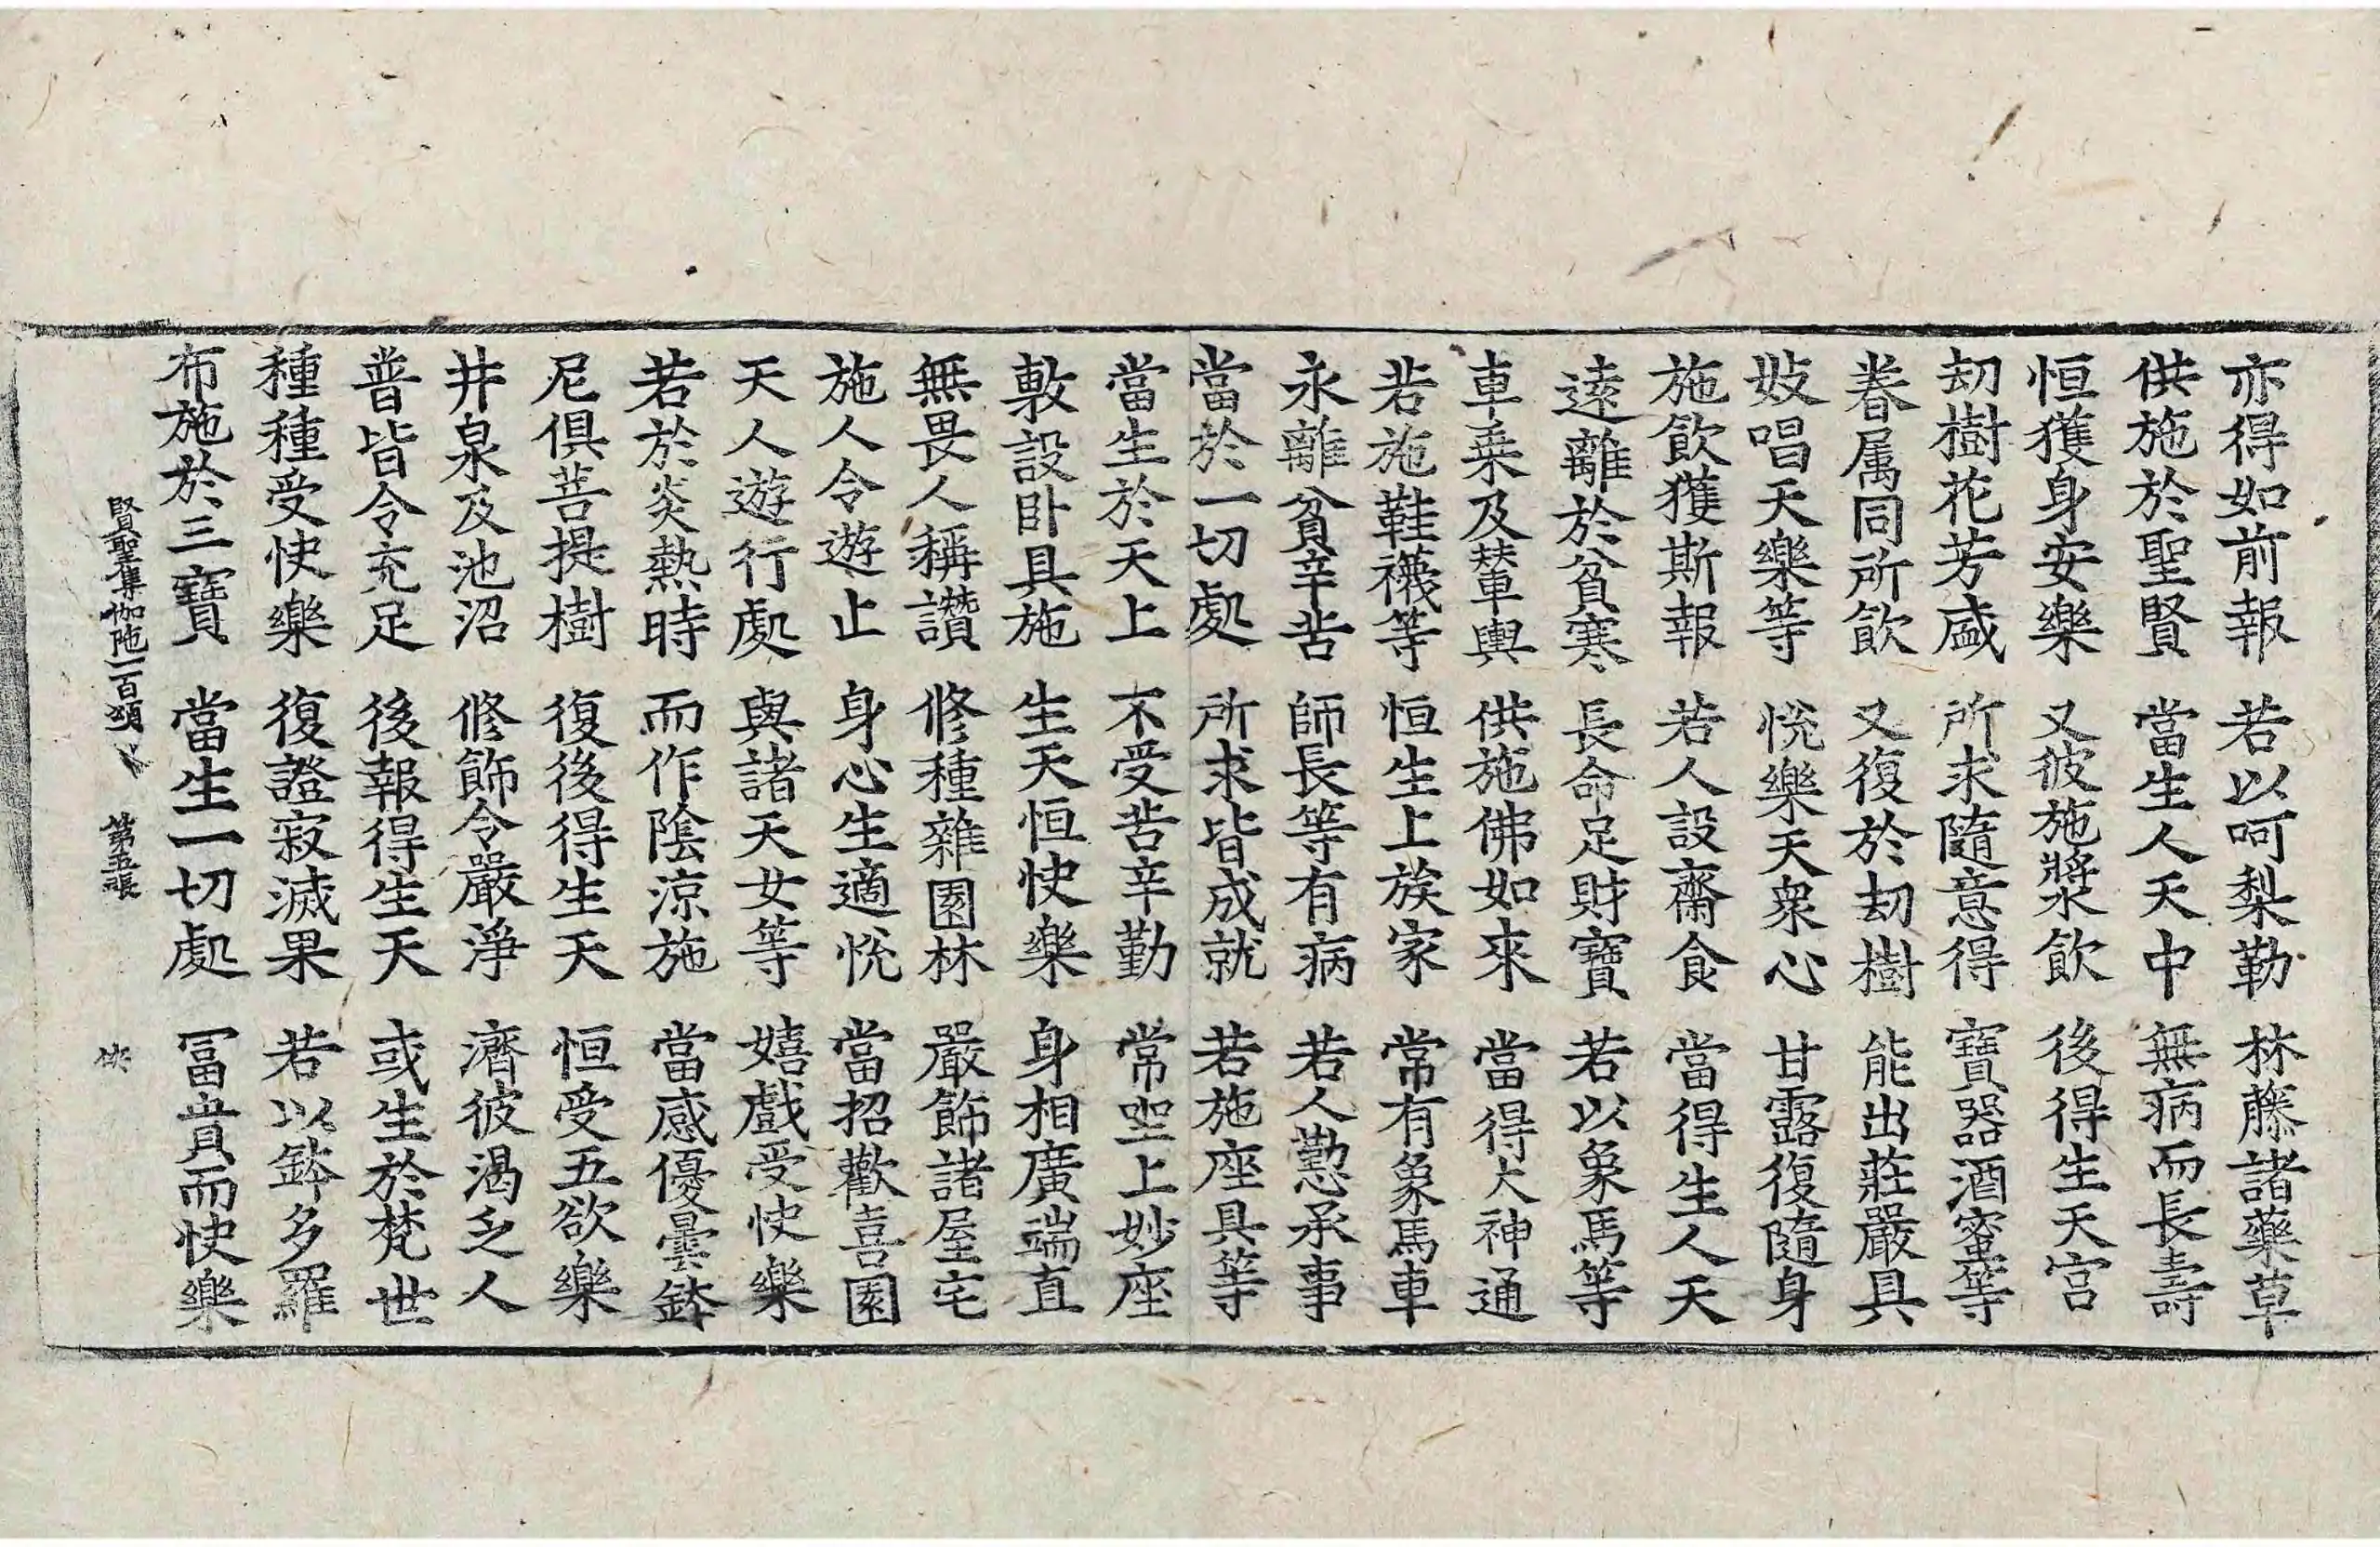 亦得如前報 若以呵梨勒 林藤諸藥草
供施於聖賢 當生人天中 無病而長壽
恒獲身安樂 又彼施漿飲 後得生天宮
刧樹花芳盛 所求隨意得 寶器酒蜜等
眷属同所飲 又復於刧樹 能出莊嚴具
妓唱天樂等 悅樂天衆心 甘露復隨身
施飲獲斯報 若人設齋食 當得生人天
遠離於貧寒 長命足財寶 若以象馬等
車乗及輦輿 供施佛如來 當得大神通
若施鞋襪等 恒生上族家 常有象馬車
永離貧辛苦 師長等有病 若人懃承事
當於一切處 所求皆成就 若施座具等
當生於天上 不受苦辛勤 常坐上妙座
敷設卧具施 生天恒快樂 身相廣端直
無畏人稱讚 修種雜園林 嚴飾諸屋宅
施人令遊止 身心生適悅 當招歡喜園
天人遊行處 與諸天女等 嬉戲受快樂
若於炎熱時 而作陰涼施 當感優曇鉢
尼俱菩提樹 復後得生天 恒受五欲樂
井泉及池沼 修飾令嚴淨 濟彼渴乏人
普皆令充足 後報得生天 或生於梵世
種種受快樂 復證寂滅果 若以鉢多羅
布施於三寶 當生一切處 冨貴而快樂
賢聖集伽陁一百頌 第五張 俠